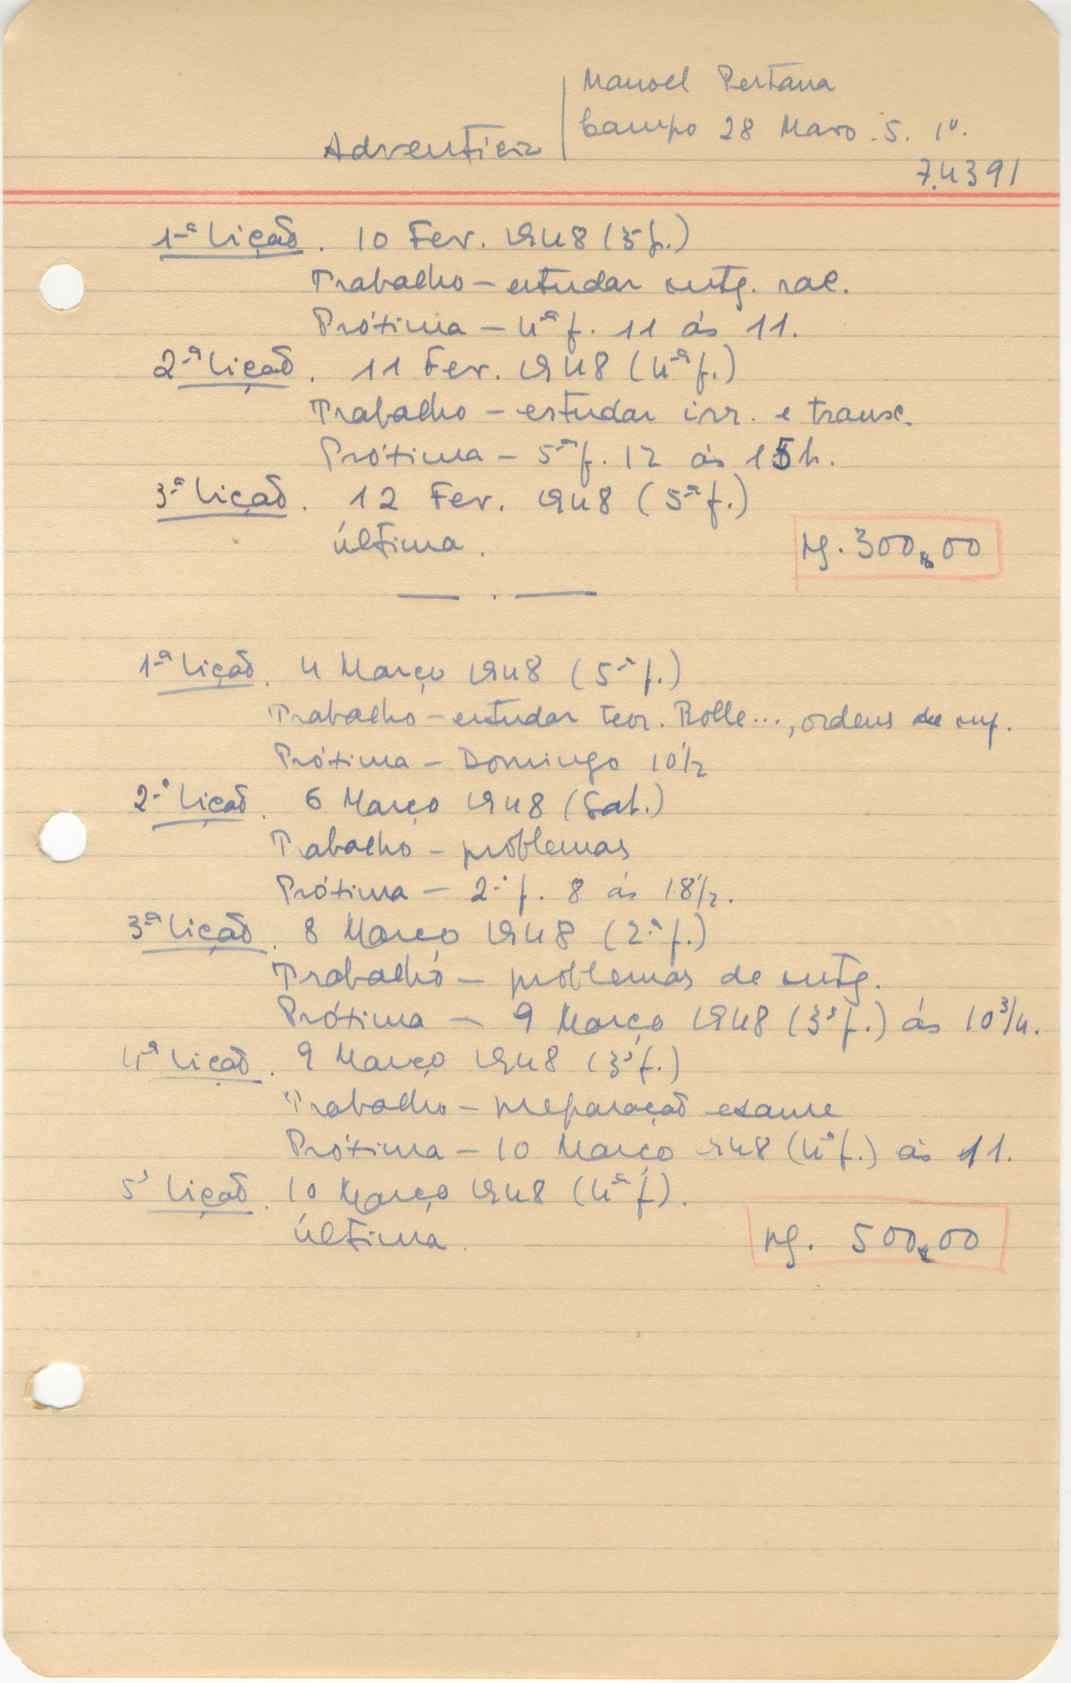 Manoel Pestana
Campo 28 Maio 5. 1º.
Adventício
7.4391
1ª Lição. 10 Fev. 1948 (3ª f.)
Trabalho – estudar integ. rac.
Próxima – 4ª f. 11 ás 11.
2ª Lição. 11 Fev. 1948 (4ª f.)
Trabalho – estudar irr. e transc.
Próxima – 5ª f. 12 ás 15h.
3ª Lição. 12 Fev. 1948 (5ª f.)
Última.
300,00
1ª Lição. 4 Março 1948 (5ª f.)
Trabalho – estudar teor. Rolle..., ordens de inf.
Próxima – Domingo 10 1/2
2ª Lição. 6 Março 1948 (Sab.)
Trabalho – problemas
Próxima – 2ª f. 8 ás 18 1/2.
3ª Lição. 8 Março 1948 (2ª f.)
Trabalho – problemas de integ.
Próxima – 9 Março 1948 (3ª f.) ás 10 3/4.
4ª Lição. 9 Março 1948 (3ª f.)
Trabalho – preparação exame
Próxima – 10 Março 1948 (4ª f.) ás 11.
5ª Lição. 10 Março 1948 (4ª f).
Última.
500,00